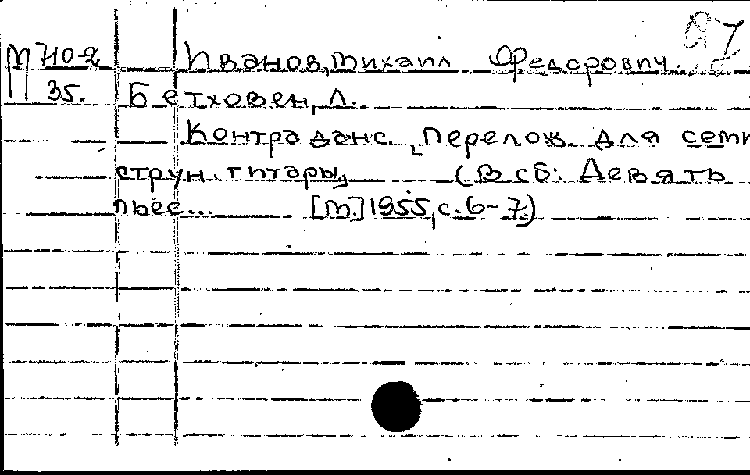 87
М 710-2 Иванов, Михаил Федорович.
35. Бетховен, Л.
Контраданс, перелож. для семи
струн. гитары, (В сб: Девять
пьес... [М.] 1955, с. 6-7.)